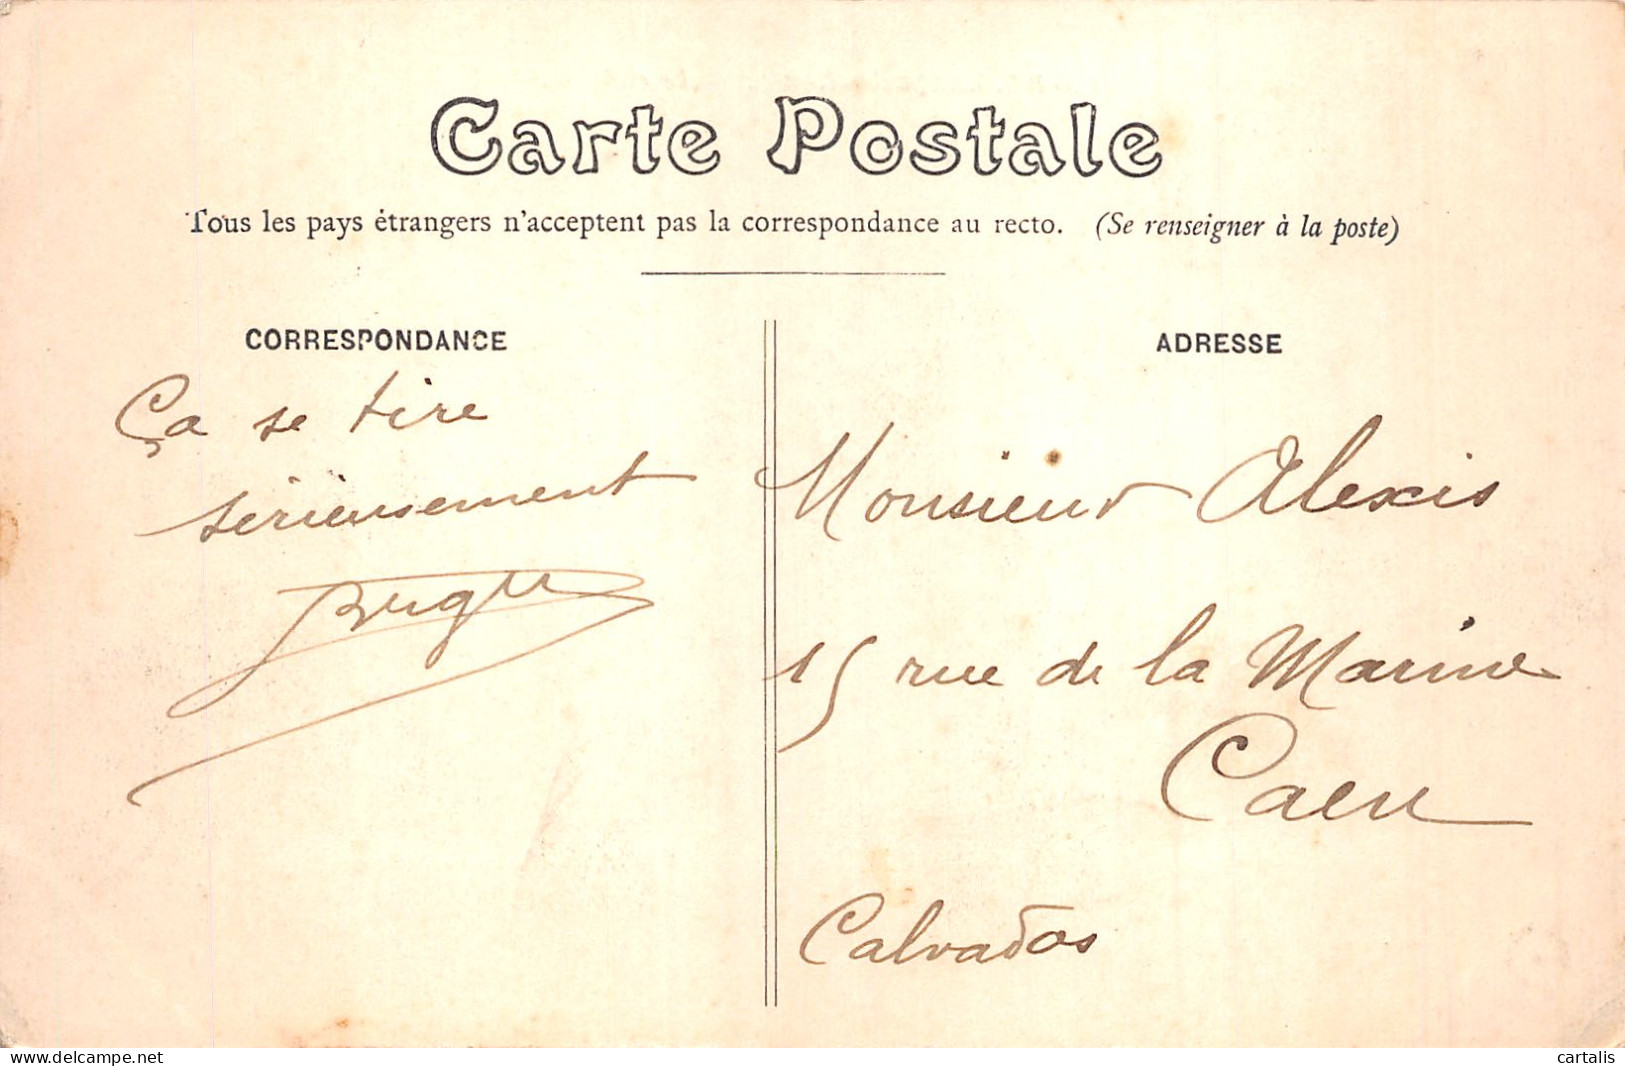 Carte Postale
Tous les pays étrangers n'acceptent pas la correspondance au recto. (Se renseigner à la poste)
CORRESPONDANCE
Ça se tire
sérieusement
ADRESSE
Monsieur Alexis
15 rue de la Marine
Caen
Calvados
www.delcampe.net
cartalis